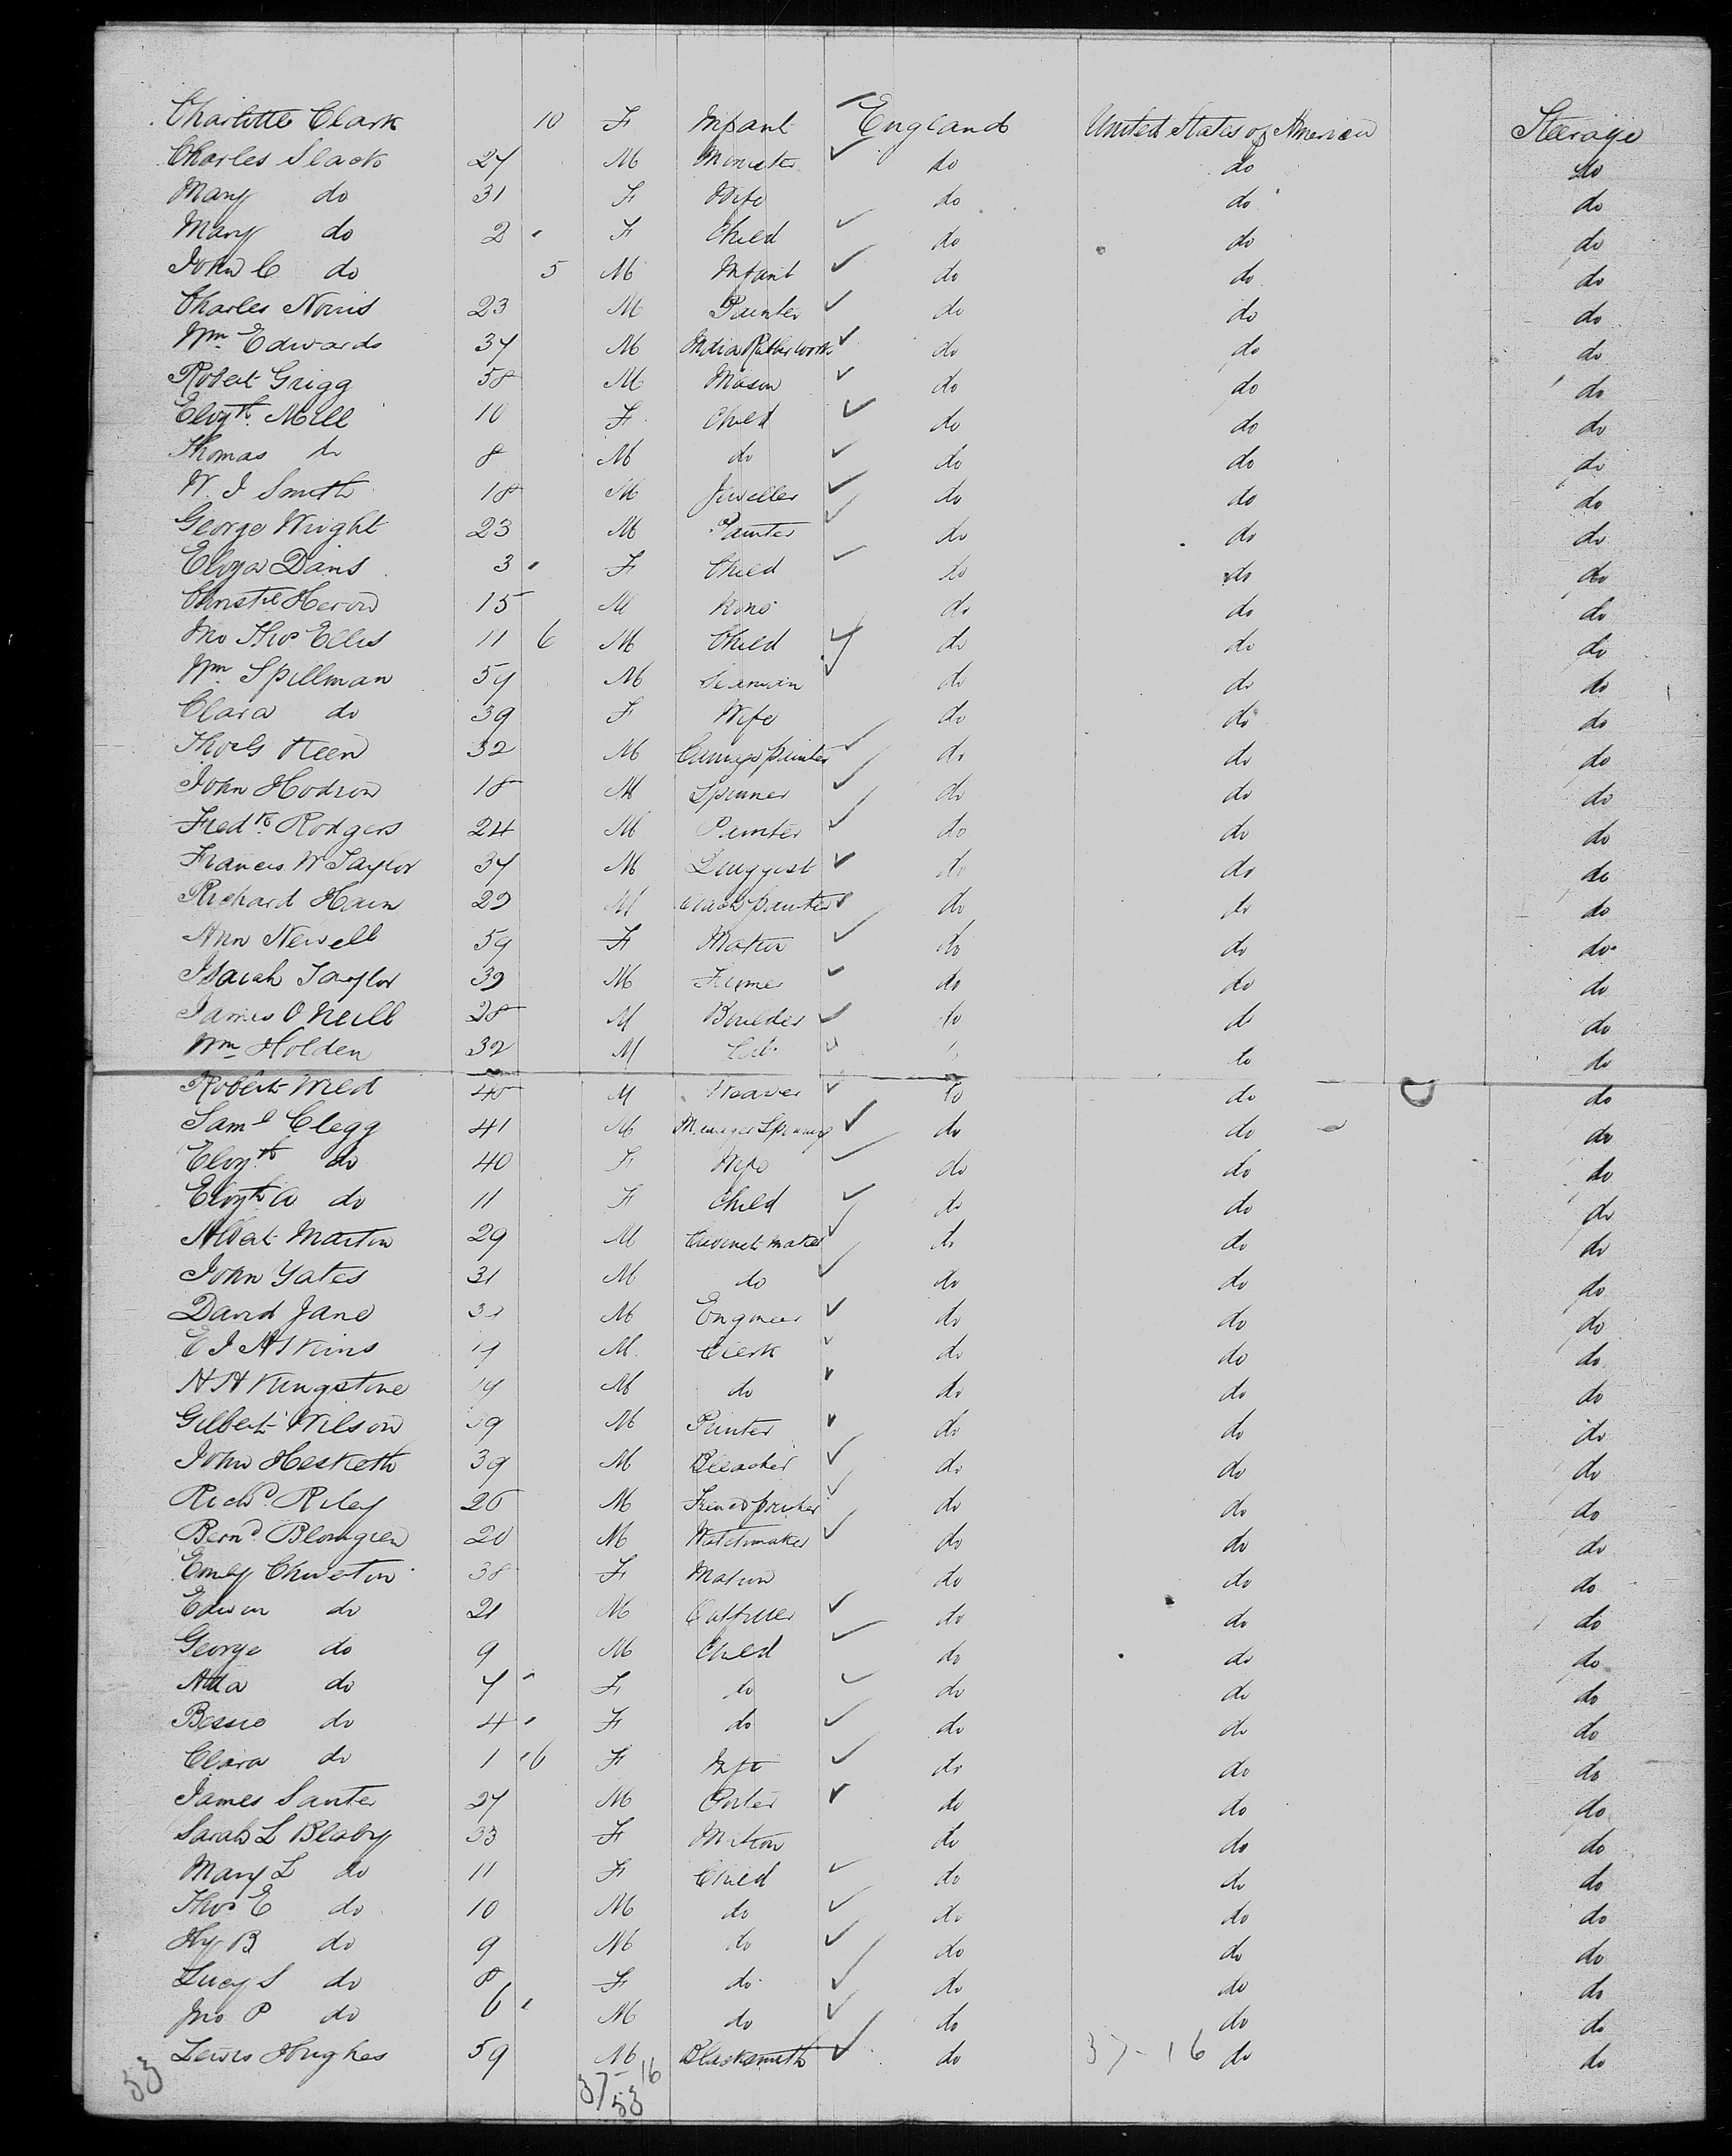 Charlotte Clark 10 F Infant England United States of America Steerage
Charles Slack 27 M Minister do do do
Mary do 31 F Wife do do do
Mary do 2 F Child do do do
John C do 5 M Infant do do do
Charles Norris 23 M Painter do do do
Wm Edwards 37 M India Rubber Work do do do
Robert Grigg 58 M Mason do do do
Elizth Mill 10 F Child do do do
Thomas do 8 M do do do do
W. J Smith 18 M Jeweller do do do
George Wright 23 M Painter do do do
Eliza Davis 3 F Child do do do
15 M None do do do
Jno Thos Ellis 11 6 M Child do do do
Wm Spillman 59 M Seaman do do do
Clara do 39 F Wife do do do
Thos G Keen 32 M Carriage painter do do do
John Hodson 18 M Spinner do do do
Fredk Rodgers 24 M do do do
Francis W Taylor 37 M Druggist do do do
Richard Ham 29 M Coach painter do do do
Ann Newell 59 F Matron do do do
Isaiah Taylor 39 M do do do
James O Neill 28 M Builder do do do
Wm Holden 32 M Lab do do
Robert Wild M Weaver do do do
Saml Clegg 41 M Manager Spinning do do do
Elizth do 40 F Wife do do do
Elizth A do 11 F Child do do do
Albert Martin 29 M Cabinet maker do do do
John Yates 31 M do do do do
David Jane M Engineer do do do
E J Atkins M Clerk do do do
H H Kingstone M do do do do
Gilbert Wilson M do do do
John Hesketh 39 M Bleacher do do do
Richd Riley 26 M do do do
Bernd Blomgren 20 M Watchmaker do do do
Emily 38 F Matron do do do
Edwin do 21 M do do do
George do 9 M Child do do do
Ada do 7 F do do do do
Bessie do 4 F do do do do
Clara do 1 6 F Inft do do do
James Santer 27 M Porter do do do
Sarah L Blaby 33 F Matron do do do
Mary L do 11 F Child do do do
Thos E do 10 M do do do do
Hy B do 9 M do do do do
Lucy S do 8 F do do do do
Jno P do 6 M do do do do
Lewis Hughes 59 M Blacksmith do 37-16 do do
53 37-16
53